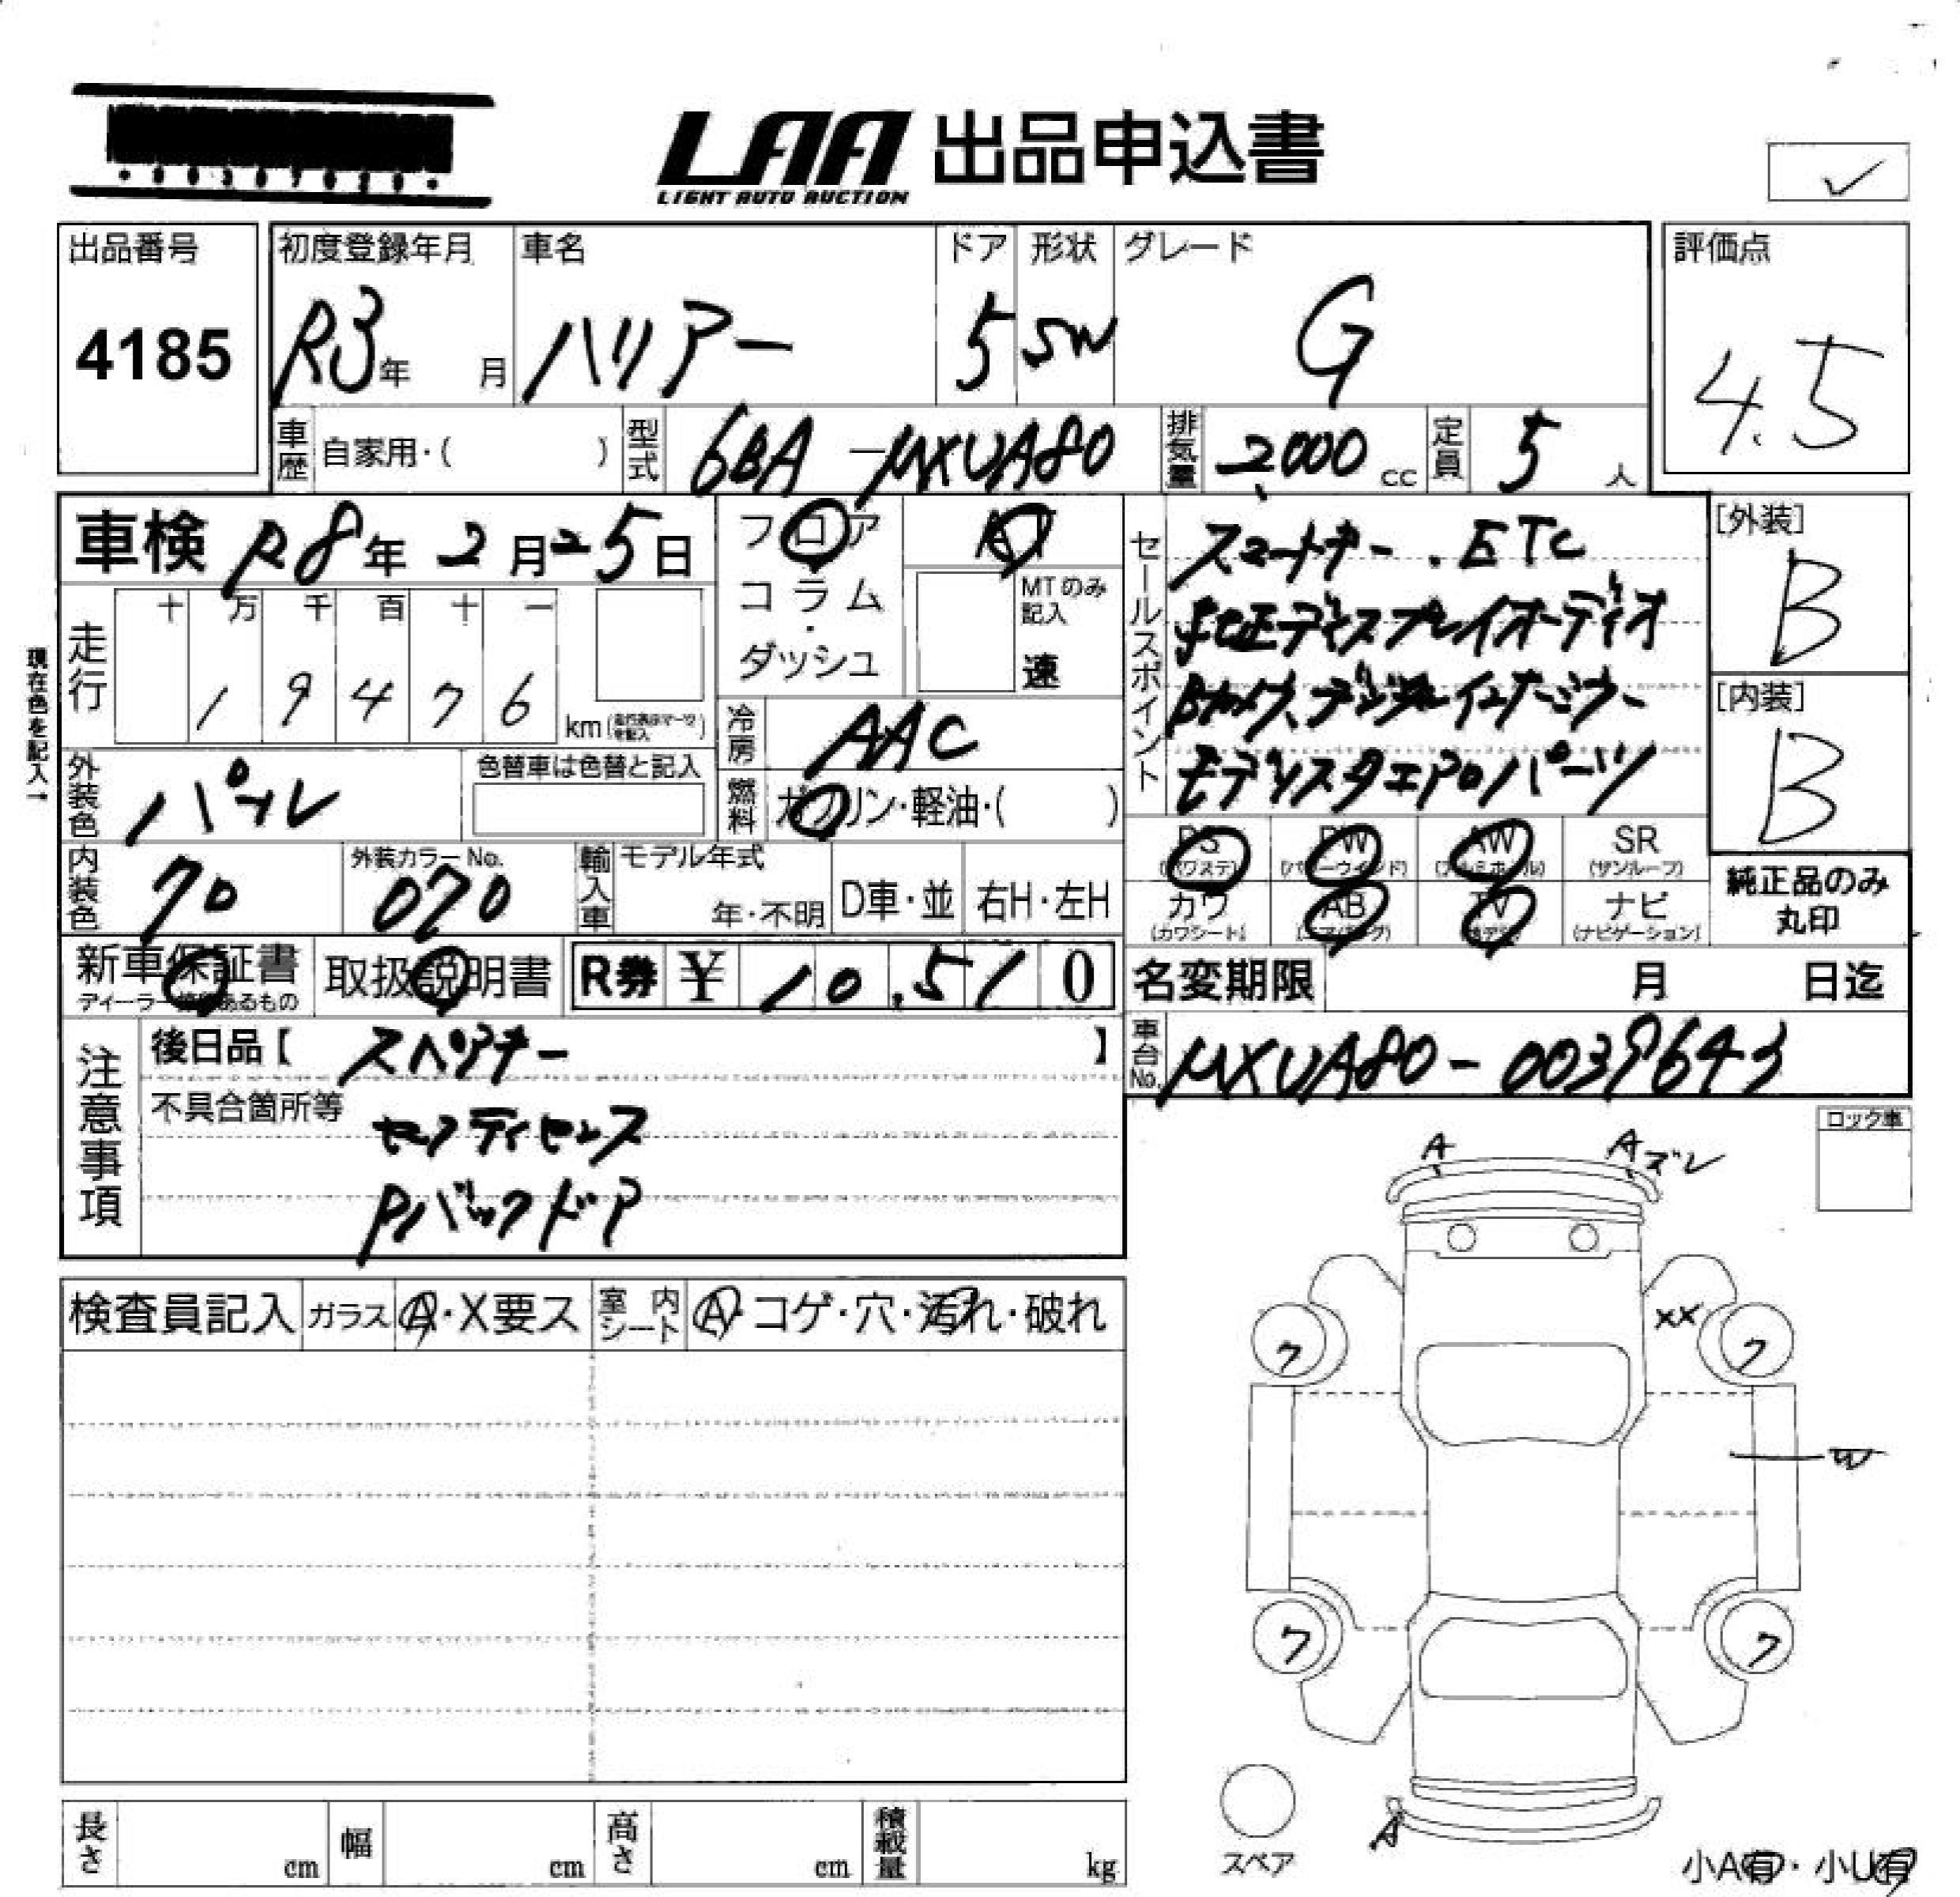 LAA 出品申込書
LIGHT AUTO AUCTION
出品番号
4185
初度登録年月
R3年 月
車名
ハリアー
ドア
5
形状
SW
グレード
G
評価点
4.5
車歴
自家用・( )
型式
6BA-MXUA80
排気量
2,000 cc
定員
5 人
車検 R8年 2月25日
フロア
コラム
・
ダッシュ
AT
MTのみ
記入
速
現在色を記入→
走行
十 万 千 百 十 一
1 9 4 7 6
km
外装色
パール
色替車は色替と記入
冷房
AAC
燃料
ガソリン・軽油・( )
内装色
クロ
外装カラーNo.
070
輸入車
モデル年式
年・不明
D車・並
右H・左H
新車保証書
取扱説明書
R券 ¥ 10,510
セールスポイント
スマートキー.ETC
純正ディスプレイオーディオ
Bカメラ、デジタルインナーミラー
モデリスタエアロパーツ
PS
(パワステ)
PW
(パワーウインド)
AW
(アルミホイール)
SR
(サンルーフ)
カワ
(カワシート)
AB
(エアバッグ)
TV
ナビ
(ナビゲーション)
[外装]
B
[内装]
B
純正品のみ
丸印
名変期限 月 日迄
車台No.
MXUA80-0039643
注意事項
後日品【 スペアキー 】
不具合箇所等
セーフティセンス
Pバックドア
検査員記入
ガラス
A・X要ス
室内
シート
A・コゲ・穴・汚れ・破れ
ロック車
A
Aズレ
XX
ク
ク
W
ク
ク
A
スペア
小A有・小U有
長さ
cm
幅
cm
高さ
cm
積載量
kg